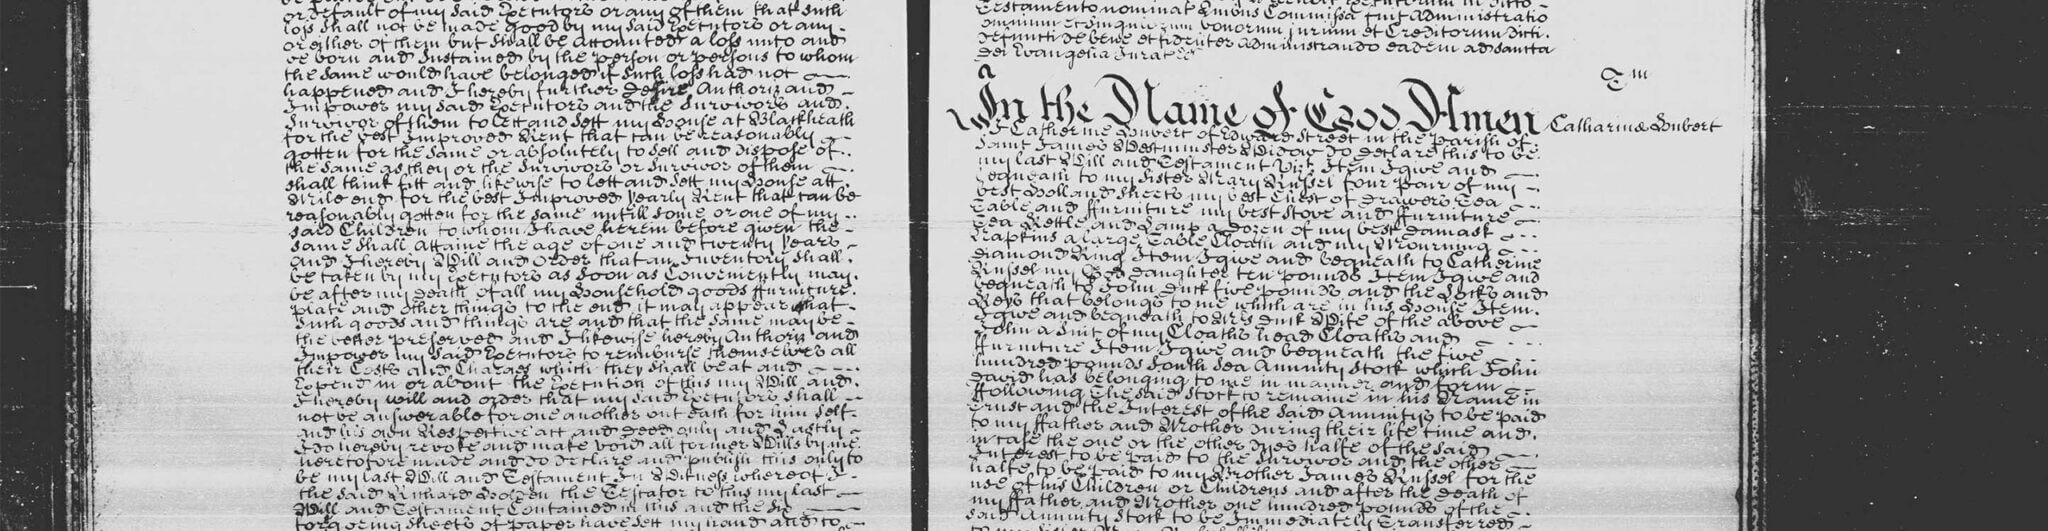 or default of my said Executors or any of them that such
loss shall not be made good by my said Executors or any
or either of them but shall be accounted a loss unto and
be born and sustained by the person or persons to whom
the same would have belonged if such loss had not
happened and I hereby further desire Authoriz and
Impower my said Executors and the Survivors and
Survivor of them to lett and sett my House at Blackheath
for the best Improved Rent that can be reasonably
gotten for the same or absolutely to sell and dispose of
the same as they or the Survivors or Survivor of them
shall think fitt and likewise to lett and sett my House att
Mile end for the best Improved yearly Rent that can be
reasonably gotten for the same untill some or one of my
said Children to whom I have herein before given the
same shall attaine the age of one and twenty years
and I hereby Will and Order that an Inventory shall
be taken by my Executors as soon as Conveniently may
be after my death of all my Household goods ffurniture
plate and other things to the end it may appear what
such goods and things are and that the same may be
the better preserved and I likewise hereby Authoriz and
Impower my said Executors to reimburse themselves all
their Costs and Charges which they shall be at and
Expend in or about the Execution of this my Will and
I hereby will and order that my said Executors shall
not be answerable for one another but each for him self
and his own Respective act and deed only and Lastly
I do hereby revoke and make void all former Wills by me
heretofore made and do declare and publish this only to
be my last Will and Testament In Witness whereof I
the said Richard the Testator to this my last
Will and Testament Contained in this and the six
foregoing sheets of paper have sett my hand and to
Testamento nominat Commissa fuit Administratio
omnium et singulorum bonorum jurium et Creditorum dicti
defuncti de bene et fideliter administrando eadem ad sancta
dei Evangelia Jurat
Tm
In the Name of God Amen
Catharina Houbert
I Catherine Houbert of Edward Street in the Parish of
Saint James Westminster Widow do declare this to be
my last Will and Testament Vizt. Item I give and
bequeath to my sister Mary Russel four pair of my
best Holland sheets my best Chest of Drawers Tea
Table and ffurniture my best stove and ffurniture
Tea Kettle and Lamp a dozen of my best damask
Napkins a large Table Cloath and my Mourning
diamond Ring Item I give and bequeath to Catherine
Russel my God daughter ten pounds Item I give and
bequeath to John Duck five pounds and the Locks and
Keys that belongs to me which are in his House Item
I give and bequeath to Mrs Duck Wife of the above
John a suit of my Cloaths head Cloaths and
ffurniture Item I give and bequeath the five
hundred pounds South Sea Annuity Stock which John
David has belonging to me in manner and form
ffollowing The said Stock to remaine in his Name in
trust and the Interest of the said Annuitys to be paid
to my ffather and Mother during their life time and
in case the one or the other dyes halfe of the said
Interest to be paid to the survivor and the other
halfe to be paid to my Brother James Russel for the
use of his Children or Childrens and after the death of
my ffather and Mother one hundred pounds of the
said Annuity Stock to be immediately Transferred